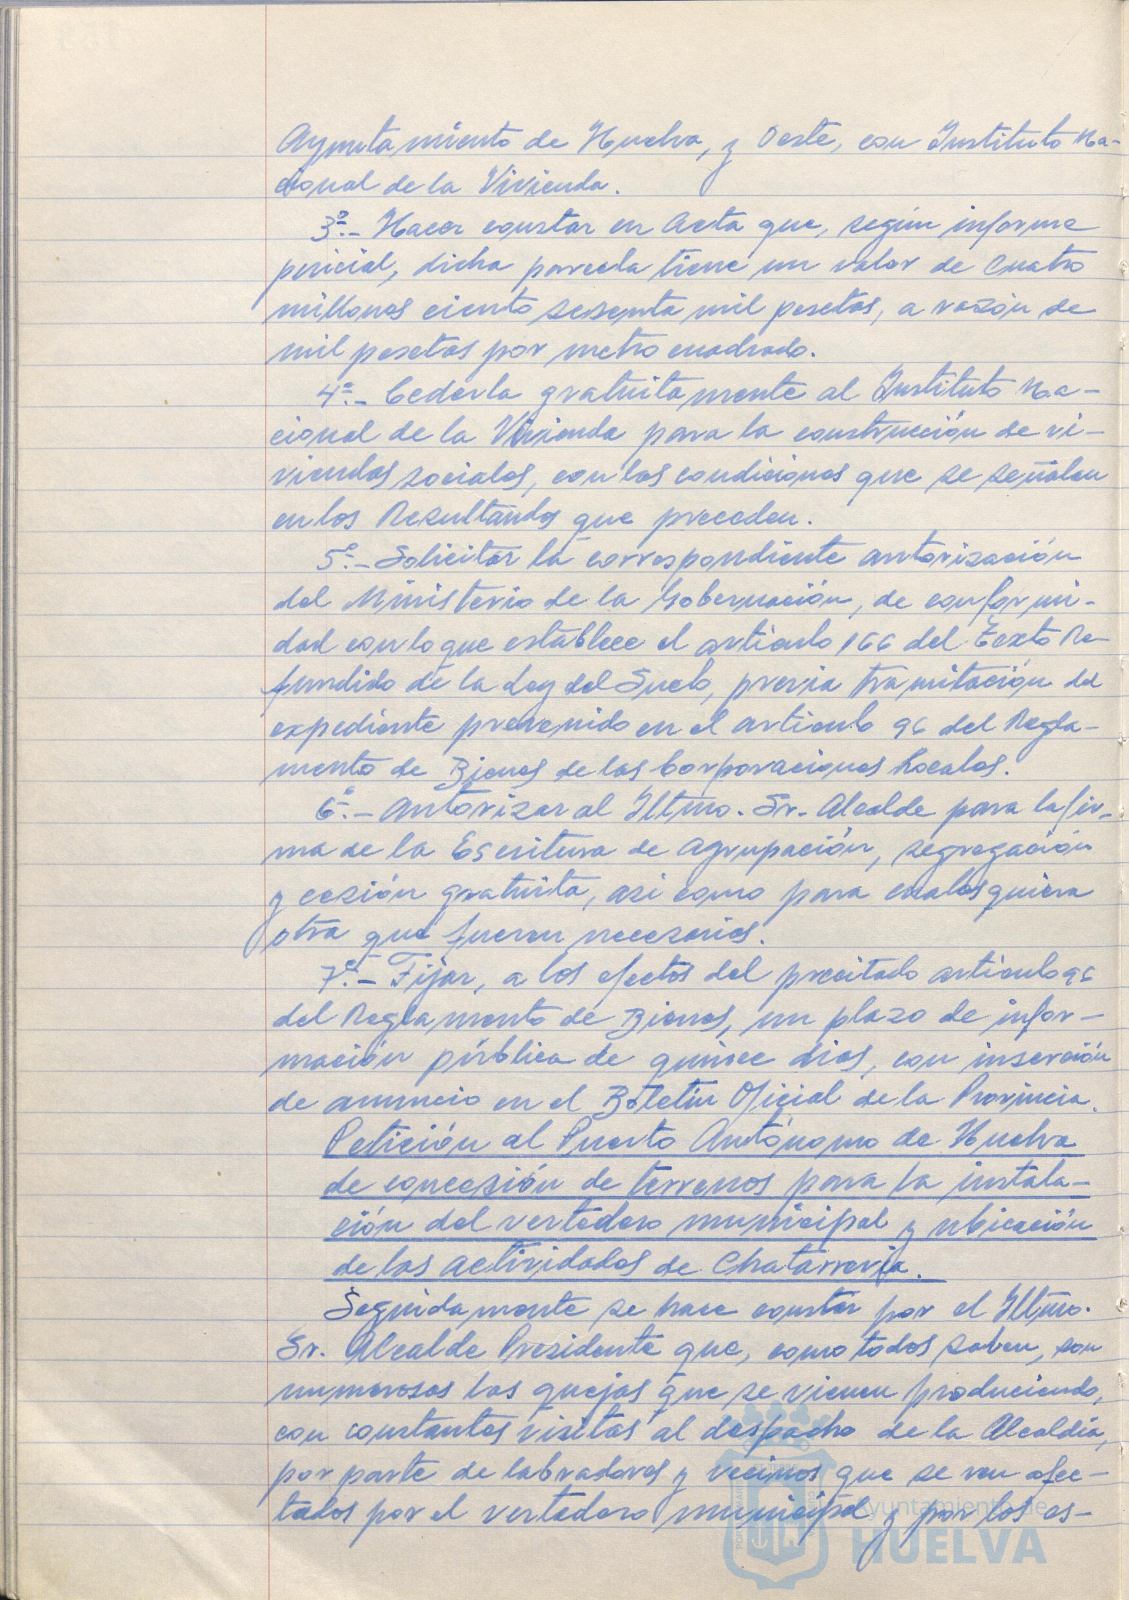 Ayuntamiento de Huelva, y Oeste, con Instituto Na-
cional de la Vivienda.
3º.- Hacer constar en Acta que, según informe
pericial, dicha parcela tiene un valor de cuatro
millones ciento sesenta mil pesetas, a razón de
mil pesetas por metro cuadrado.
4º.- Cederla gratuitamente al Instituto Na-
cional de la Vivienda para la construcción de vi-
viendas sociales, con las condiciones que se señalan
en los Resultandos que preceden.
5º.- Solicitar la correspondiente autorización
del Ministerio de la Gobernación, de conformi-
dad con lo que establece el artículo 166 del Texto Re-
fundido de la Ley del Suelo, previa tramitación del
expediente prevenido en el artículo 96 del Regla-
mento de Bienes de las Corporaciones Locales.
6º.- Autorizar al Iltmo. Sr. Alcalde para la fir-
ma de la Escritura de agrupación, segregación
y cesión gratuita, así como para cualesquiera
otra que fueren necesarios.
7º.- Fijar, a los efectos del precitado artículo 96
del Reglamento de Bienes, un plazo de infor-
mación pública de quince días, con inserción
de anuncio en el Boletín Oficial de la Provincia.
Petición al Puerto Autónomo de Huelva
de concesión de terrenos para la instala-
ción del vertedero municipal y ubicación
de las actividades de Chatarrería.
Seguidamente se hace constar por el Iltmo.
Sr. Alcalde Presidente que, como todos saben, son
numerosas las quejas que se vienen produciendo,
con constantes visitas al despacho de la Alcaldía,
por parte de labradores y vecinos que se ven afec-
tados por el vertedero municipal y por los es-
Ayuntamiento de
HUELVA